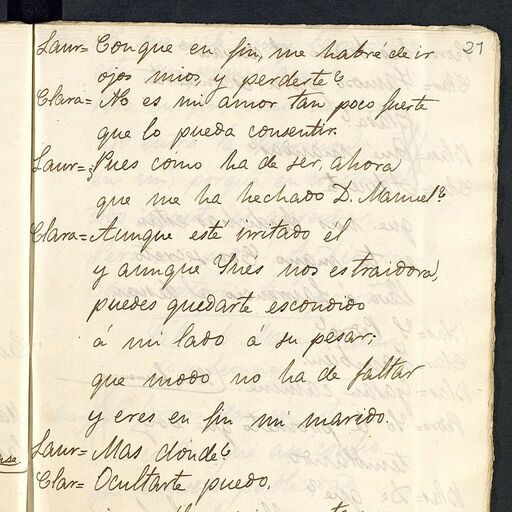 21
Laur= Conque en fin, me habré de ir
ojos mios, y perderte?
Clara= No es mi amor tan poco fuerte
que lo pueda consentir.
Laur= ¿Pues cómo ha de ser, ahora
que me ha hechado D. Manuel?
Clara= Aunque esté irritado él
y aunque Ynés nos es traidora,
puedes quedarte escondido
á mi lado á su pesar;
que modo no ha de faltar
y eres en fin mi marido.
Laur= Mas dónde?
Clar= Ocultarte puedo.